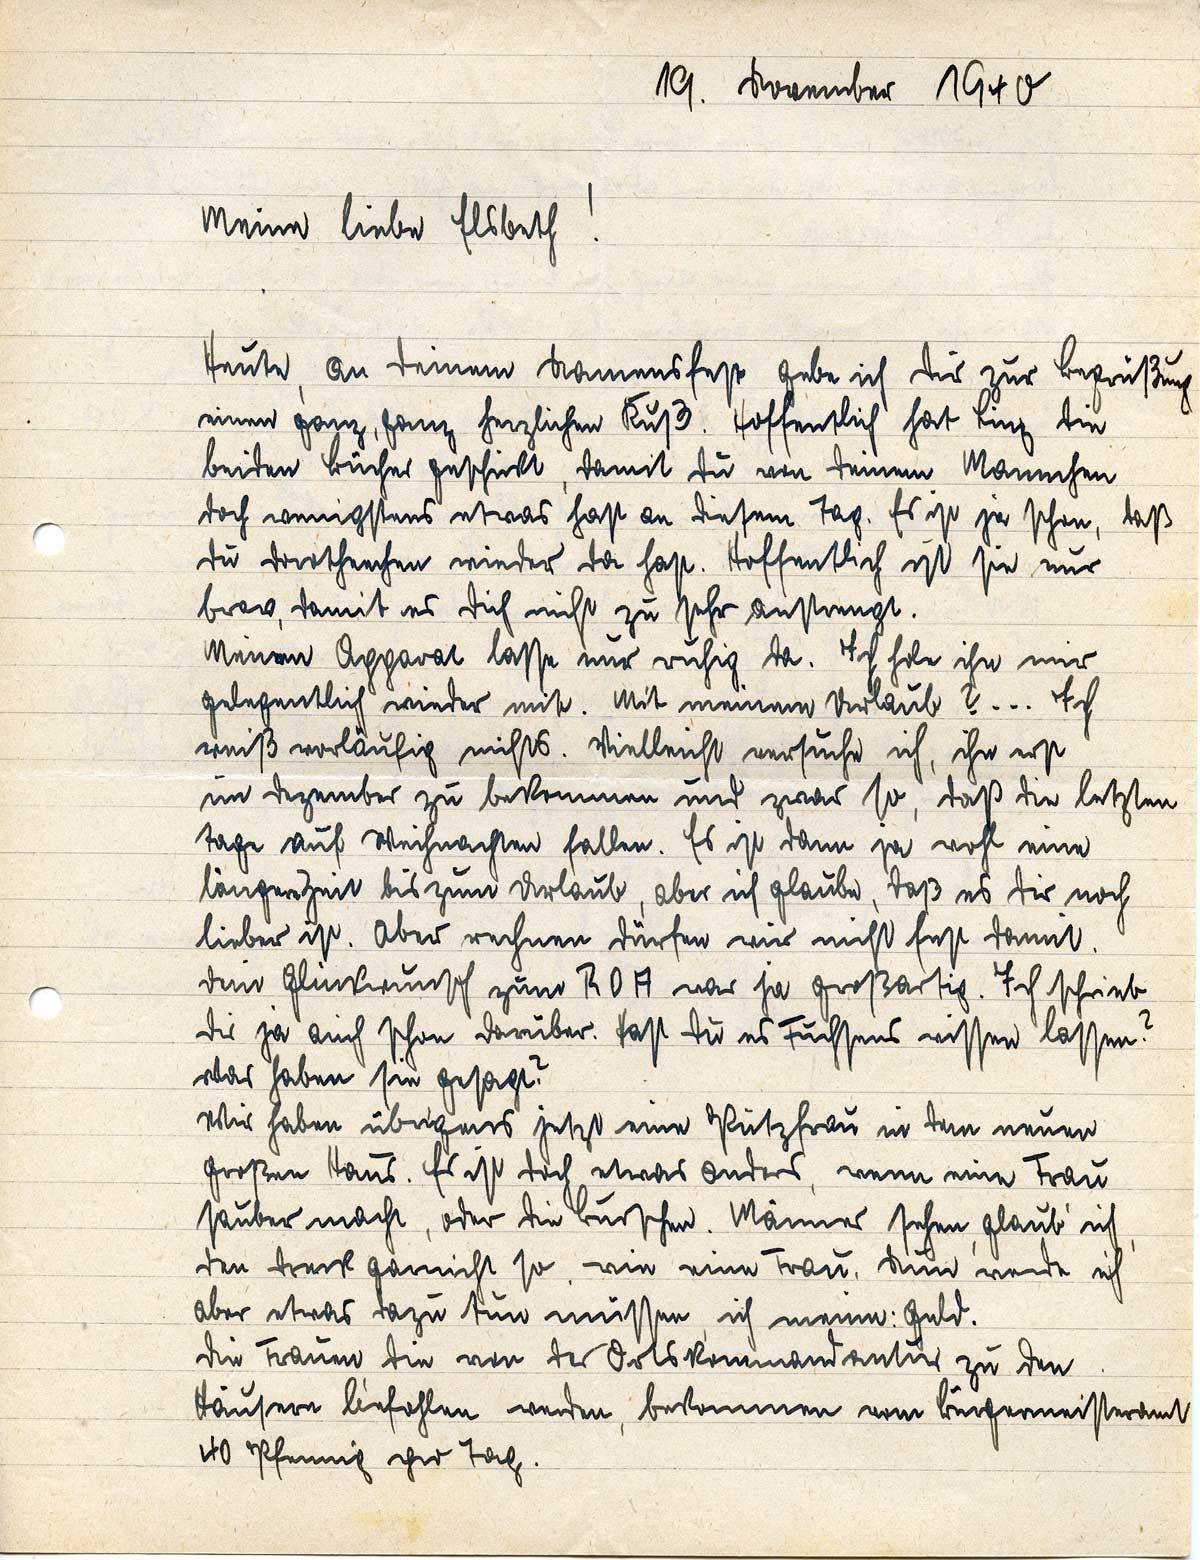 19. November 1940
Meine liebe Elsbeth!
Heute, an Deinem Namensfest gebe ich Dir zur Begrüßung
einen ganz, ganz herzlichen Kuß. Hoffentlich hat Linz die
beiden Bücher geschickt, damit Du von Deinem Mannchen
doch wenigstens etwas hast an diesem Tag. Es ist ja schon, daß
Du Dorotheechen wieder da hast. Hoffentlich ist sie nur
brav, damit es Dich nicht zu sehr anstrengt.
Meinen Apparat lasse nur ruhig da. Ich hole ihn mir
gelegentlich wieder mit. Mit meinem Urlaub?... Ich
weiß vorläufig nichts. Vielleicht versuche ich, ihn erst
im Dezember zu bekommen und zwar so, daß die letzten
Tage auf Weihnachten fallen. Es ist dann ja wohl eine
längere Zeit bis zum Urlaub, aber ich glaube, daß es Dir noch
lieber ist. Aber rechnen dürfen wir nicht fest damit.
Dein Glückwunsch zum ROA war ja großartig. Ich schrieb
Dir ja auch schon darüber. Hast Du es Fuchsens wissen lassen?
Was haben sie gesagt?
Wir haben übrigens jetzt eine Putzfrau in dem neuen
großen Haus. Es ist doch etwas anders, wenn eine Frau
sauber macht, oder die Burschen. Männer sehen, glaub' ich,
den Dreck garnicht so, wie eine Frau. Nun werde ich
aber etwas dazu tun müssen, ich meine: Geld.
Die Frauen die von der Ortskommandantur zu den
Häusern befohlen werden, bekommen vom Bürgermeisteramt
40 Pfennig pro Tag.